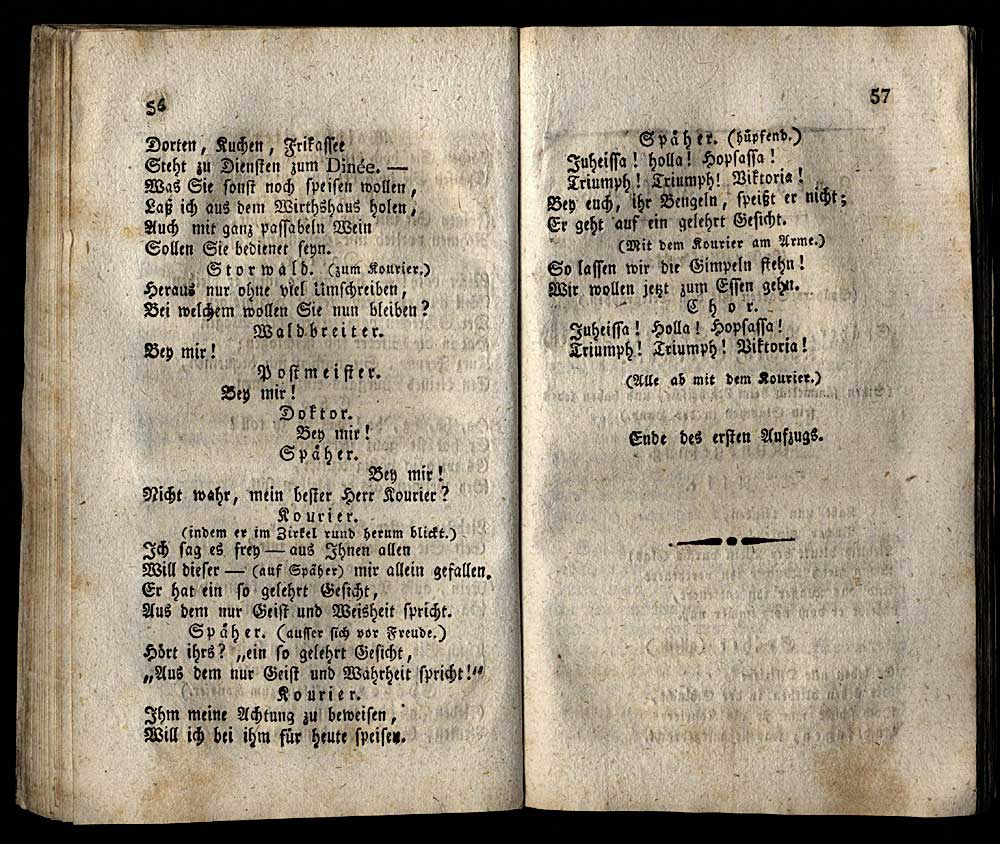 56
Dorten, Kuchen, Frikassee
Steht zu Diensten zum Dinée. —
Was Sie sonst noch speisen wollen,
Laß ich aus dem Wirthshaus holen,
Auch mit ganz passabeln Wein
Sollen Sie bedienet seyn.
Storwald. (zum Kourier.)
Heraus nur ohne viel Umschreiben,
Bei welchem wollen Sie nun bleiben?
Waldbreiter.
Bey mir!
Postmeister.
Bey mir!
Doktor.
Bey mir!
Späher.
Bey mir!
Nicht wahr, mein bester Herr Kourier?
Kourier.
(indem er im Zirkel rund herum blickt.)
Ich sag es frey — aus Ihnen allen
Will dieser — (auf Späher) mir allein gefallen.
Er hat ein so gelehrt Gesicht,
Aus dem nur Geist und Weisheit spricht.
Späher. (ausser sich vor Freude.)
Hört ihrs? „ein so gelehrt Gesicht,
„Aus dem nur Geist und Wahrheit spricht!“
Kourier.
Ihm meine Achtung zu beweisen,
Will ich bei ihm für heute speisen.
57
Späher. (hüpfend.)
Juheissa! holla! Hopsassa!
Triumph! Triumph! Viktoria!
Bey euch, ihr Bengeln, speißt er nicht;
Er geht auf ein gelehrt Gesicht.
(Mit dem Kourier am Arme.)
So lassen wir die Gimpeln stehn!
Wir wollen jetzt zum Essen gehn.
Chor.
Juheissa! Holla! Hopsassa!
Triumph! Triumph! Viktoria!
(Alle ab mit dem Kourier.)
Ende des ersten Aufzugs.